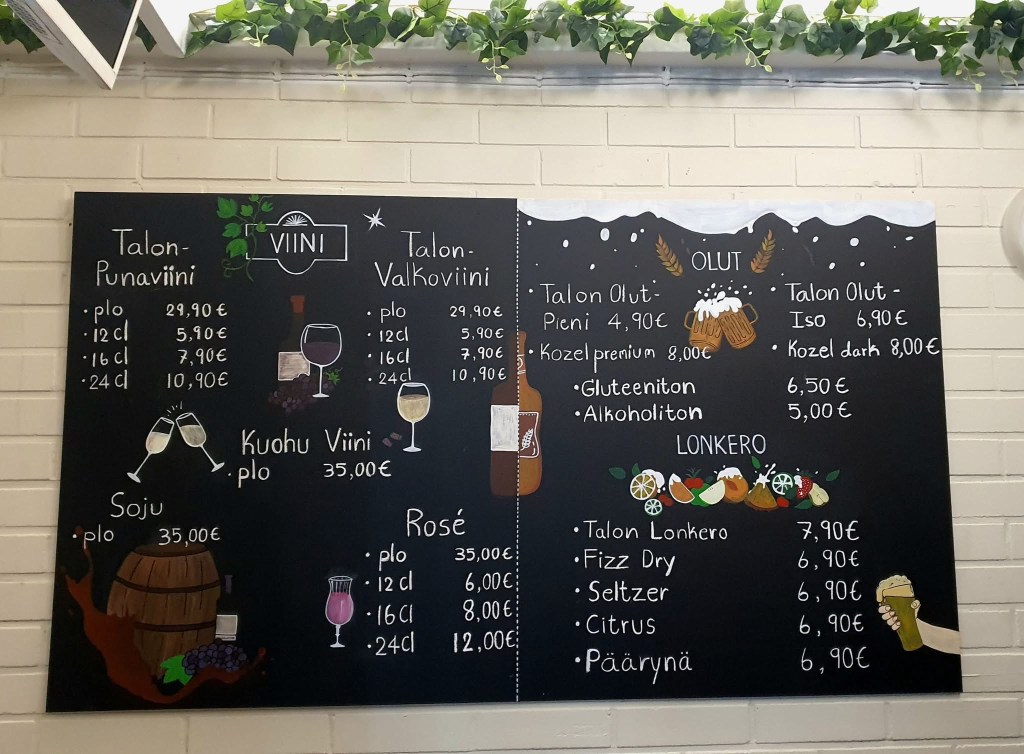 VIINI
Talon-
Punaviini
• plo 29,90€
• 12cl 5,90€
• 16cl 7,90€
• 24cl 10,90€
Talon-
Valkoviini
• plo 29,90€
• 12cl 5,90€
• 16cl 7,90€
• 24cl 10,90€
Kuohu Viini
• plo 35,00€
Soju
• plo 35,00€
Rosé
• plo 35,00€
• 12 cl 6,00€
• 16cl 8,00€
• 24cl 12,00€
OLUT
• Talon Olut-
Pieni 4,90€
• Talon Olut-
Iso 6,90€
• Kozel premium 8,00€
• Kozel dark 8,00€
• Gluteeniton 6,50€
• Alkoholiton 5,00€
LONKERO
• Talon Lonkero 7,90€
• Fizz Dry 6,90€
• Seltzer 6,90€
• Citrus 6,90€
• Päärynä 6,90€